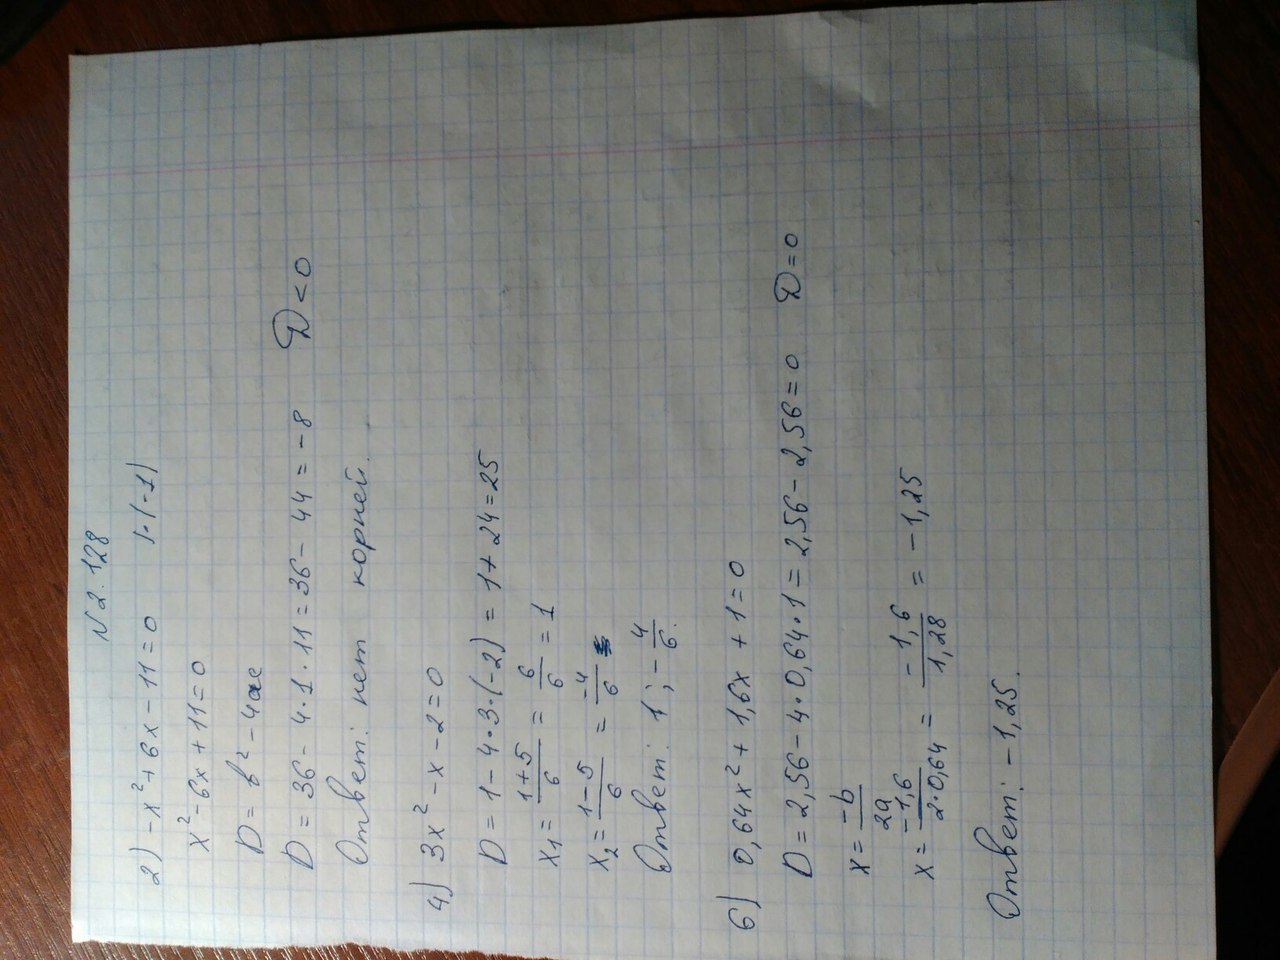 N 2.128
2) -x² + 6x - 11 = 0 |·(-1)
x² - 6x + 11 = 0
D = b² - 4ac
D = 36 - 4·1·11 = 36 - 44 = -8 D < 0
Ответ: нет корней.
4) 3x² - x - 2 = 0
D = 1 - 4·3·(-2) = 1 + 24 = 25
x₁ = (1+5)/6 = 6/6 = 1
x₂ = (1-5)/6 = -4/6
Ответ: 1; -4/6.
6) 0,64x² + 1,6x + 1 = 0
D = 2,56 - 4·0,64·1 = 2,56 - 2,56 = 0 D = 0
x = -b/2a
x = -1,6/2·0,64 = -1,6/1,28 = -1,25
Ответ: -1,25.